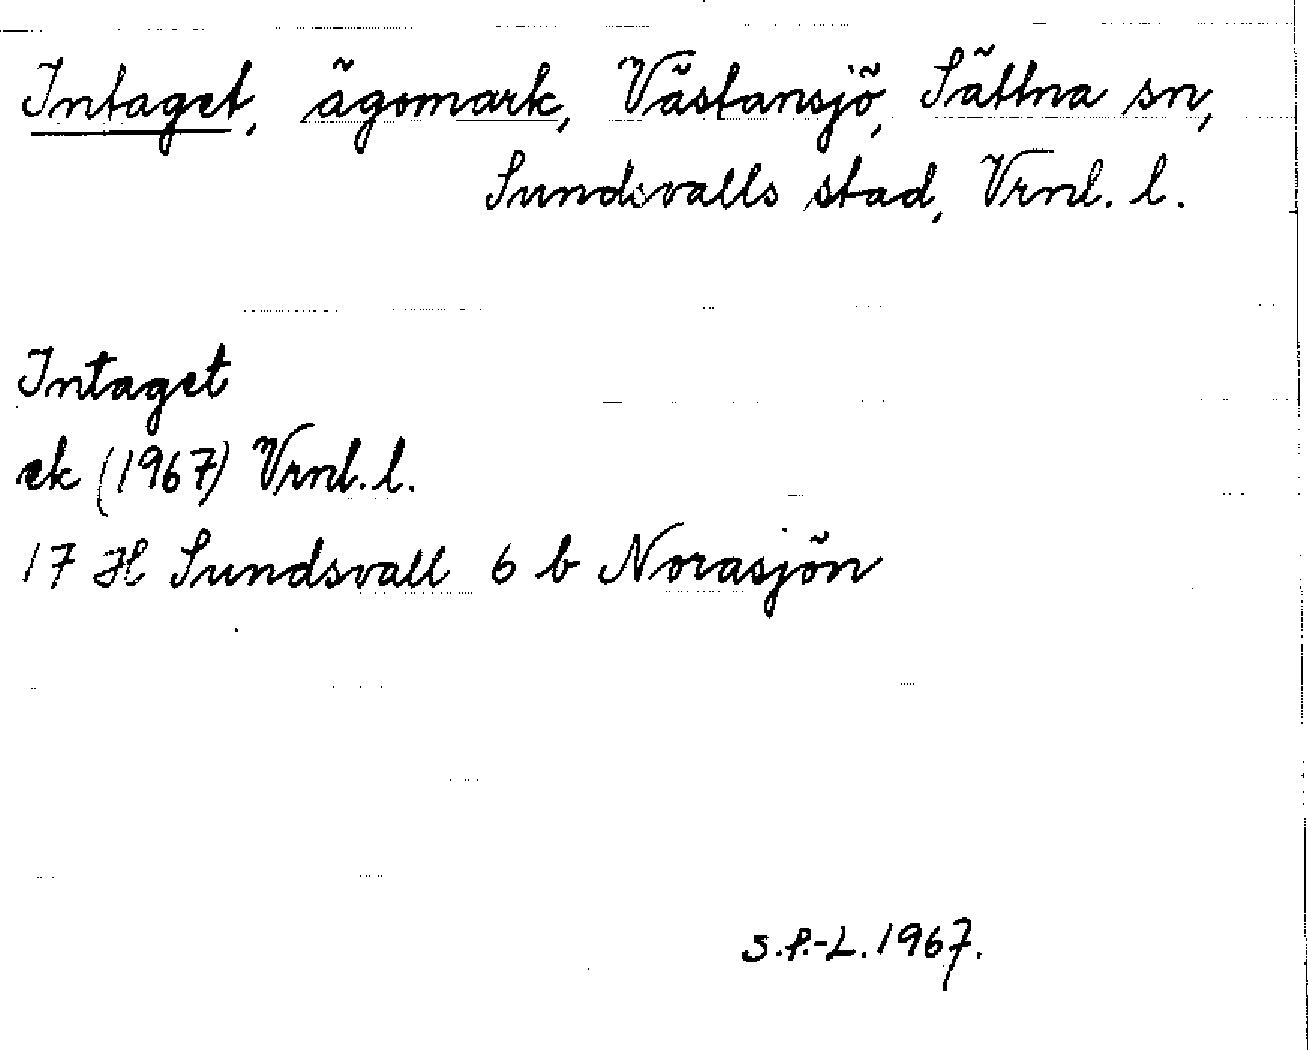 Intaget, ägomark, Västansjö, Sättna sn,
Sundsvalls stad, Vrnl. l.
Intaget
ek (1967) Vrnl. l.
17 H Sundsvall 6 b Norasjön
S.P.-L. 1967.